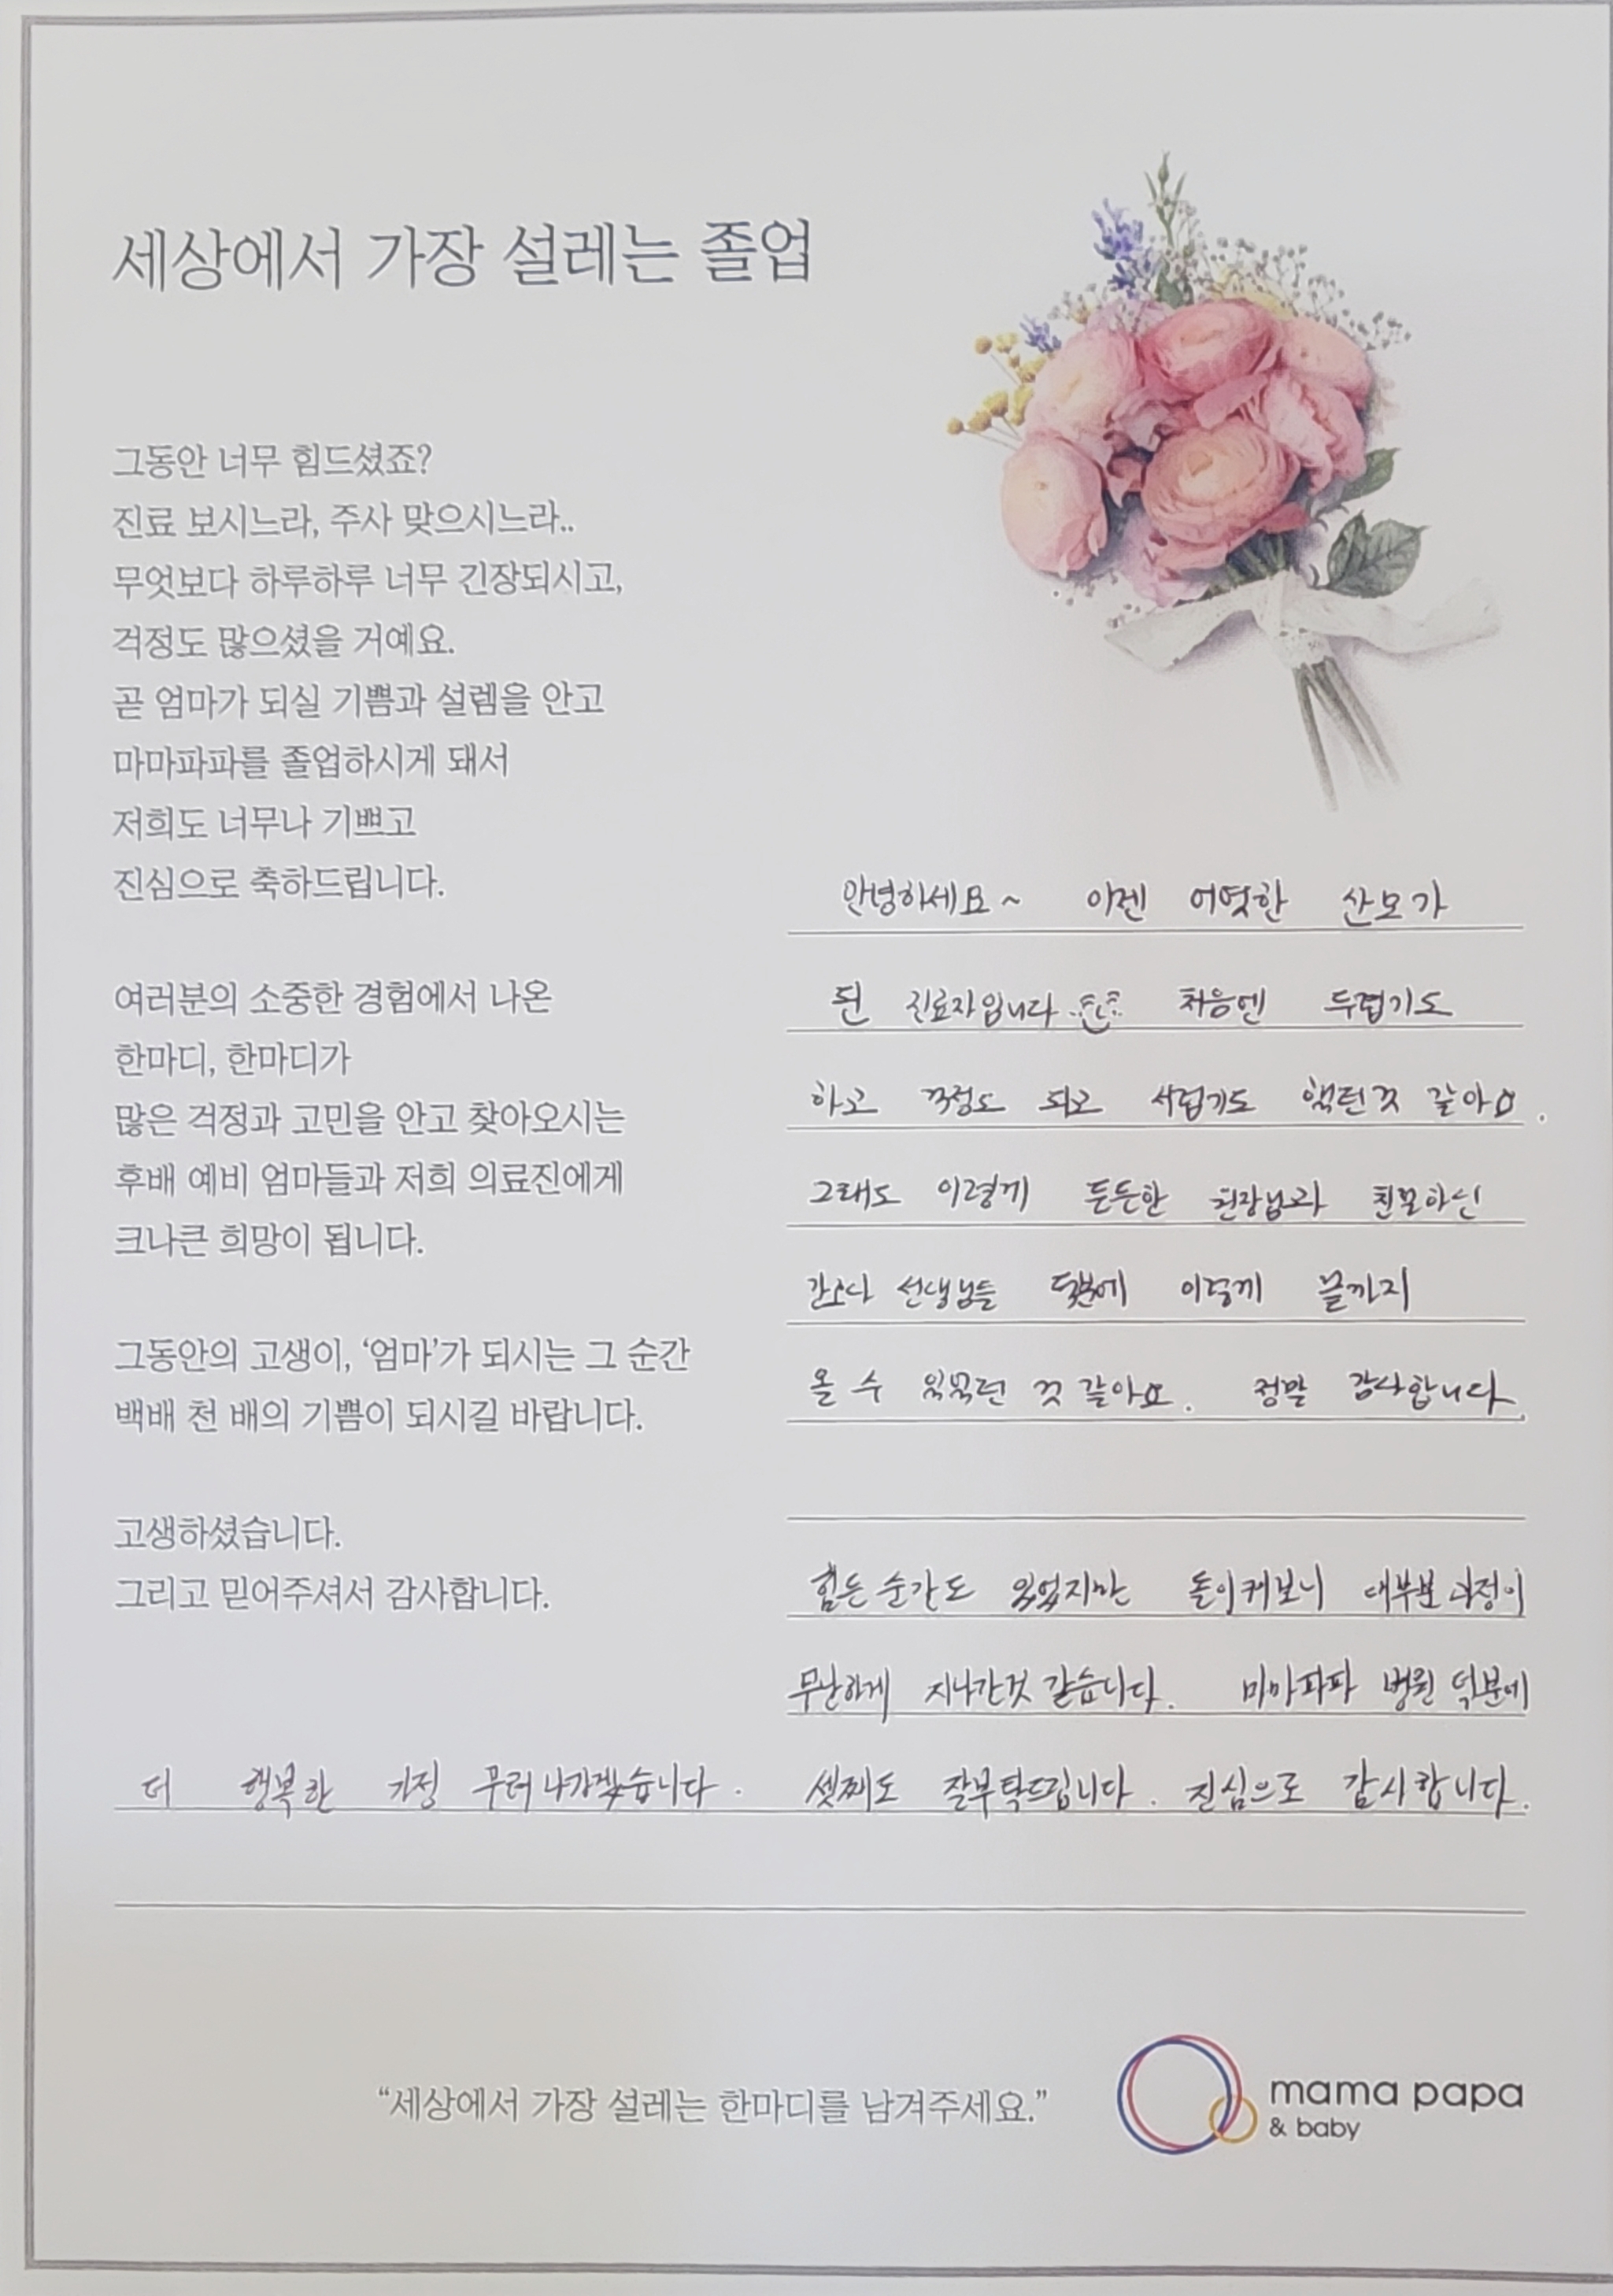 세상에서 가장 설레는 졸업
그동안 너무 힘드셨죠?
진료 보시느라, 주사 맞으시느라..
무엇보다 하루하루 너무 긴장되시고,
걱정도 많으셨을 거예요.
곧 엄마가 되실 기쁨과 설렘을 안고
마마파파를 졸업하시게 돼서
저희도 너무나 기쁘고
진심으로 축하드립니다.
여러분의 소중한 경험에서 나온
한마디, 한마디가
많은 걱정과 고민을 안고 찾아오시는
후배 예비 엄마들과 저희 의료진에게
크나큰 희망이 됩니다.
그동안의 고생이, ‘엄마’가 되시는 그 순간
백배 천 배의 기쁨이 되시길 바랍니다.
고생하셨습니다.
그리고 믿어주셔서 감사합니다.
안녕하세요~ 이젠 어엿한 산모가
된 진료자입니다 처음엔 두렵기도
하고 걱정도 되고 서럽기도 했던것 같아요.
그래도 이렇게 든든한 원장님과 친절하신
간호사 선생님들 덕분에 이렇게 끝까지
올 수 있었던 것 같아요. 정말 감사합니다.
힘든 순간도 있었지만 돌이켜보니 대부분 과정이
무난하게 지나간것 같습니다. 마마파파 병원 덕분에
더 행복한 가정 꾸려나가겠습니다. 셋째도 잘부탁드립니다. 진심으로 감사합니다.
“세상에서 가장 설레는 한마디를 남겨주세요.”
mama papa
& baby